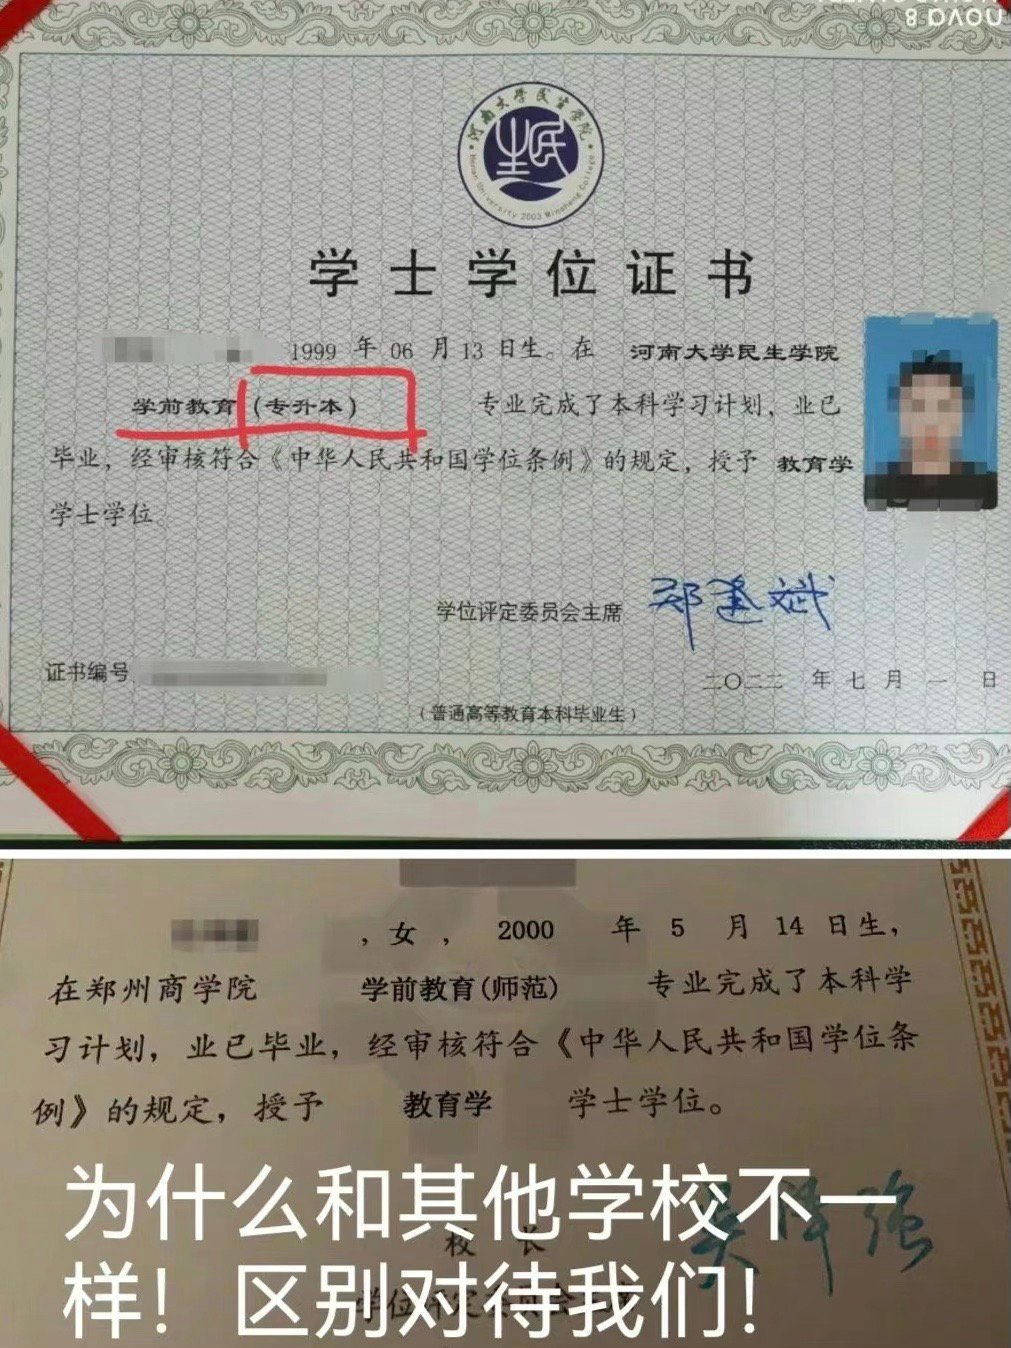 nova 8
河南大学民生学院
Henan University 2003 Minsheng College
学士学位证书
1999 年 06 月 13 日生。在 河南大学民生学院
学前教育（专升本） 专业完成了本科学习计划，业已
毕业，经审核符合《中华人民共和国学位条例》的规定，授予 教育学
学士学位。
学位评定委员会主席 郑逢斌
证书编号
二〇二二 年 七 月 一 日
（普通高等教育本科毕业生）
，女， 2000 年 5 月 14 日生，
在郑州商学院 学前教育(师范) 专业完成了本科学
习计划，业已毕业，经审核符合《中华人民共和国学位条
例》的规定，授予 教育学 学士学位。
为什么和其他学校不一
校 长
样！区别对待我们！